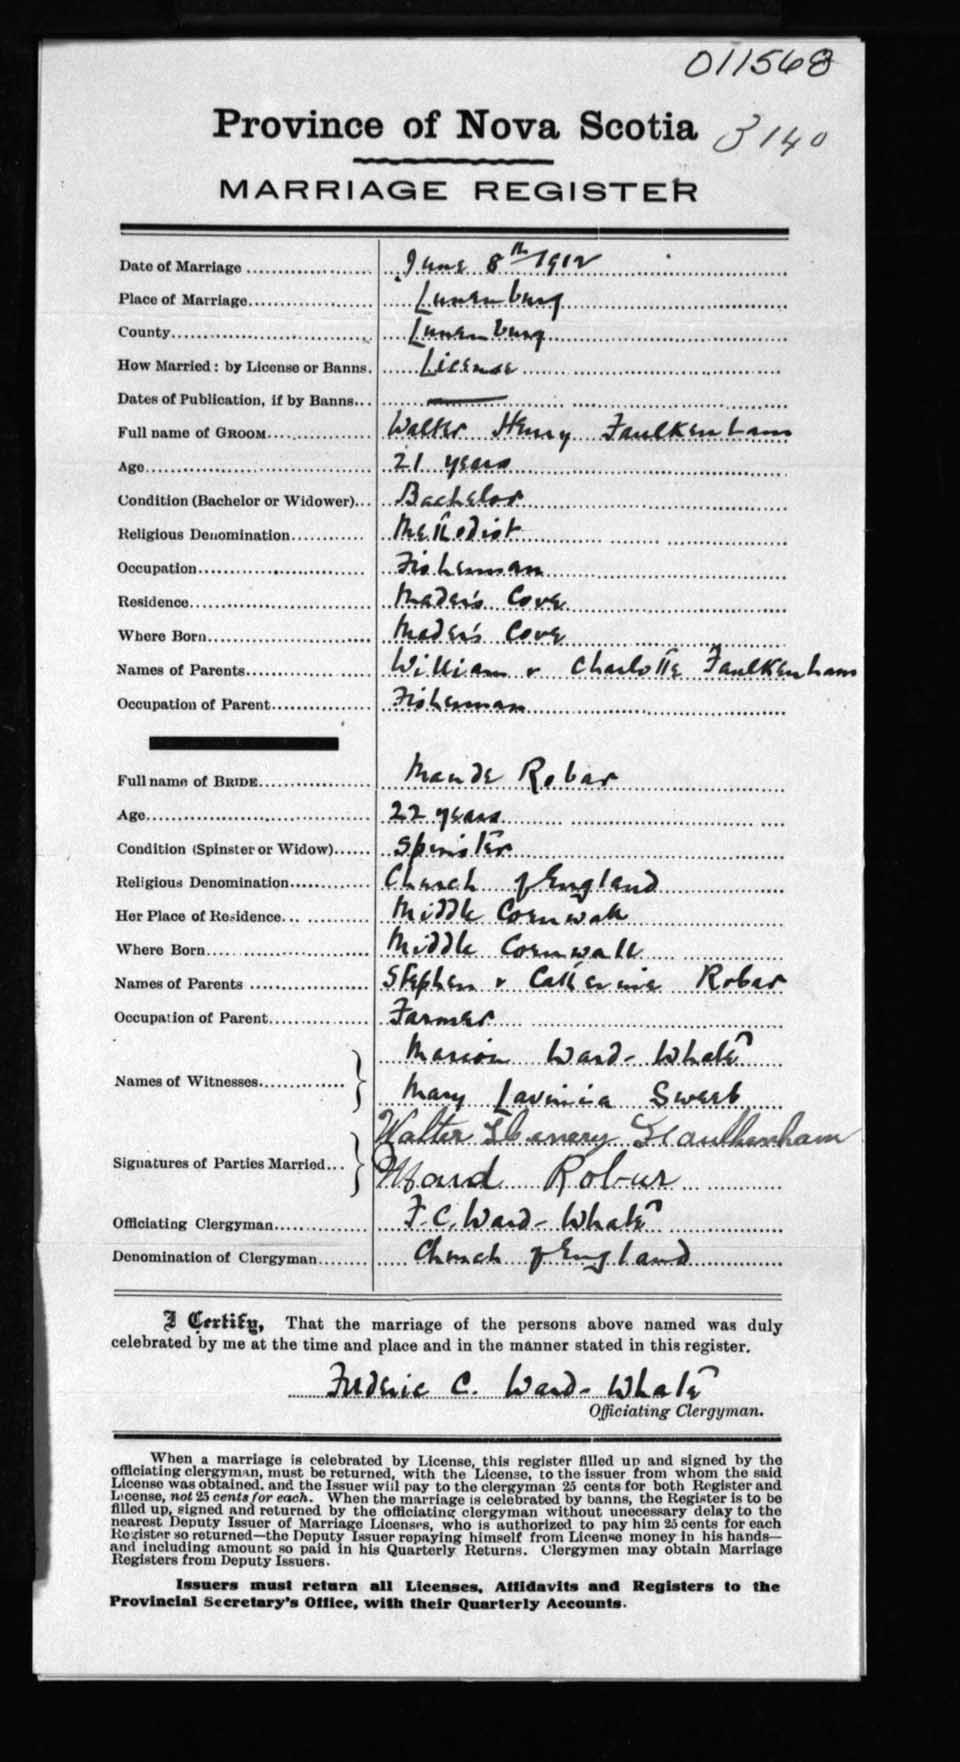 011568
Province of Nova Scotia
3140
MARRIAGE REGISTER
Date of Marriage June 8th 1912
Place of Marriage Lunenburg
County Lunenburg
How Married: by License or Banns. License
Dates of Publication, if by Banns —
Full name of GROOM Walter Henry Faulkenham
Age 21 years
Condition (Bachelor or Widower) Bachelor
Religious Denomination Methodist
Occupation Fisherman
Residence Mader's Cove
Where Born Mader's Cove
Names of Parents William & Charlotte Faulkenham
Occupation of Parent Fisherman
Full name of BRIDE Maude Robar
Age 22 years
Condition (Spinster or Widow) Spinster
Religious Denomination Church of England
Her Place of Residence Middle Cornwall
Where Born Middle Cornwall
Names of Parents Stephen & Catherine Robar
Occupation of Parent Farmer
Marion Ward-Whate
Names of Witnesses
Mary Lavinia Sweet
Walter Henery Flaulkenham
Signatures of Parties Married
Maud Robur
Officiating Clergyman F. C. Ward-Whate
Denomination of Clergyman Church of England
I Certify, That the marriage of the persons above named was duly
celebrated by me at the time and place and in the manner stated in this register.
Frederic C. Ward-Whate
Officiating Clergyman.
When a marriage is celebrated by License, this register filled up and signed by the
officiating clergyman, must be returned, with the License, to the issuer from whom the said
License was obtained, and the Issuer will pay to the clergyman 25 cents for both Register and
License, not 25 cents for each. When the marriage is celebrated by banns, the Register is to be
filled up, signed and returned by the officiating clergyman without unecessary delay to the
nearest Deputy Issuer of Marriage Licenses, who is authorized to pay him 25 cents for each
Register so returned—the Deputy Issuer repaying himself from License money in his hands—
and including amount so paid in his Quarterly Returns. Clergymen may obtain Marriage
Registers from Deputy Issuers.
Issuers must return all Licenses, Affidavits and Registers to the
Provincial Secretary's Office, with their Quarterly Accounts.